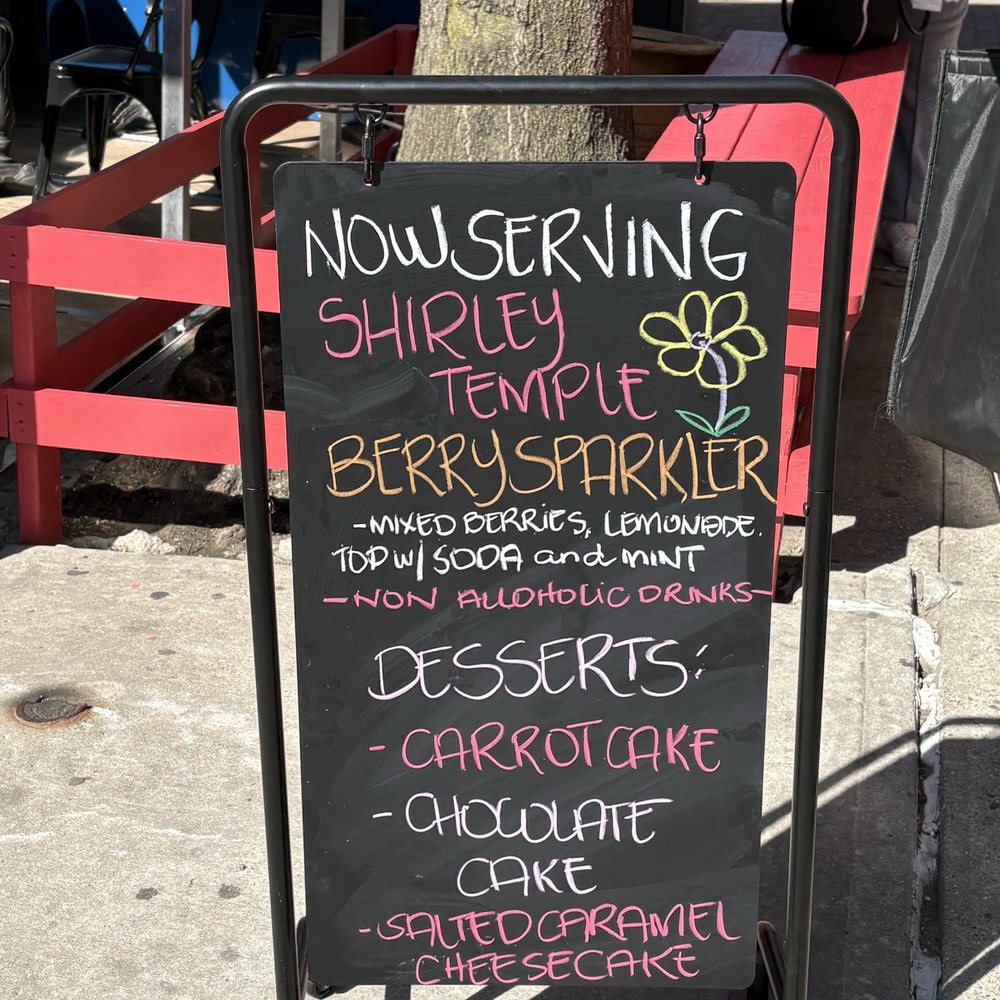 NOW SERVING
SHIRLEY
TEMPLE
BERRY SPARKLER
-MIXED BERRIES, LEMONADE.
TOP W/ SODA and MINT
-NON ALLOHOLIC DRINKS-
DESSERTS:
- CARROT CAKE
- CHOCOLATE
CAKE
-SALTED CARAMEL
CHEESECAKE